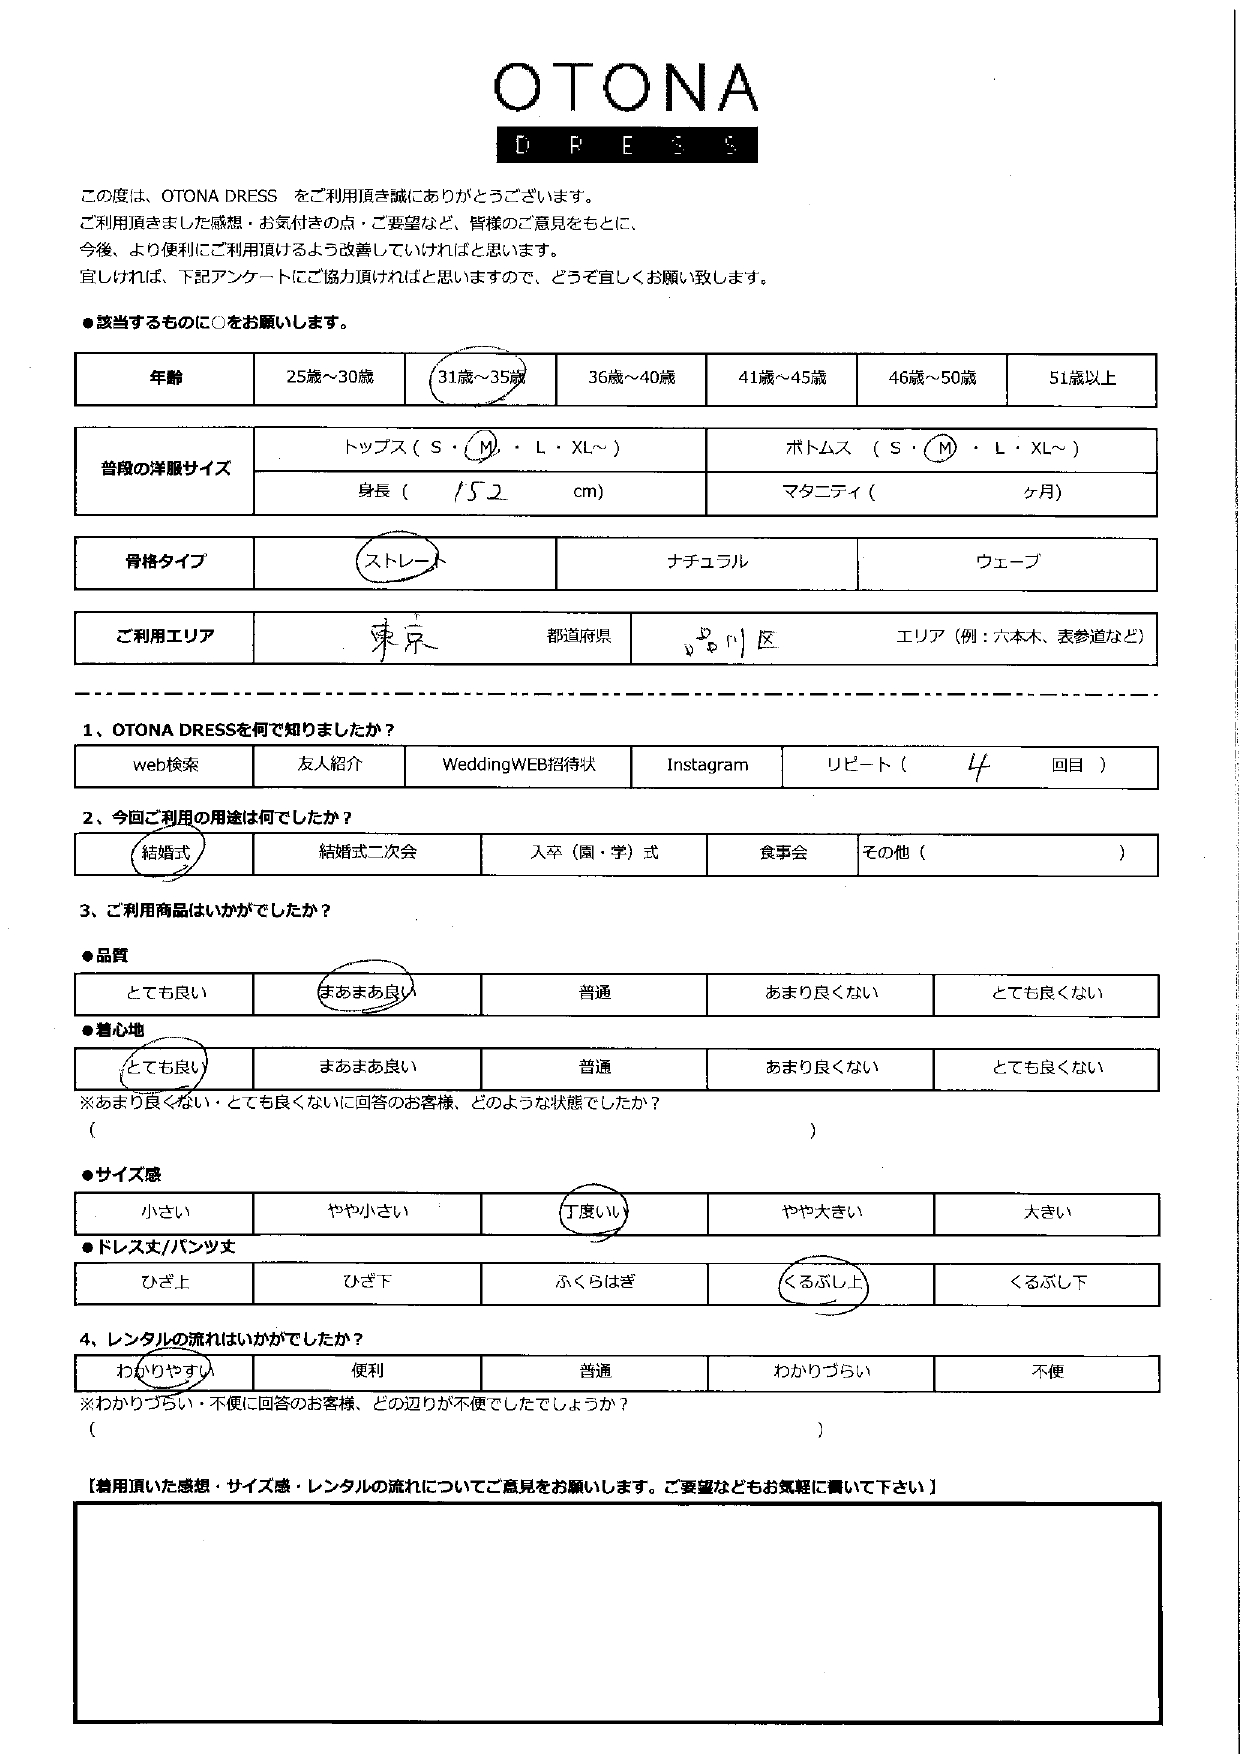 OTONA
DRESS
この度は、OTONA DRESS　をご利用頂き誠にありがとうございます。
ご利用頂きました感想・お気付きの点・ご要望など、皆様のご意見をもとに、
今後、より便利にご利用頂けるよう改善していければと思います。
宜しければ、下記アンケートにご協力頂ければと思いますので、どうぞ宜しくお願い致します。
●該当するものに○をお願いします。
年齢 25歳～30歳 31歳～35歳 36歳～40歳 41歳～45歳 46歳～50歳 51歳以上
普段の洋服サイズ トップス ( S ・ M ・ L ・ XL～ ) ボトムス ( S ・ M ・ L ・ XL～ )
身長 ( 152 cm) マタニティ ( ヶ月)
骨格タイプ ストレート ナチュラル ウェーブ
ご利用エリア 東京 都道府県 品川区 エリア（例：六本木、表参道など）
1、OTONA DRESSを何で知りましたか？
web検索 友人紹介 WeddingWEB招待状 Instagram リピート ( 4 回目 )
2、今回ご利用の用途は何でしたか？
結婚式 結婚式二次会 入卒（園・学）式 食事会 その他 ( )
3、ご利用商品はいかがでしたか？
●品質
とても良い まあまあ良い 普通 あまり良くない とても良くない
●着心地
とても良い まあまあ良い 普通 あまり良くない とても良くない
※あまり良くない・とても良くないに回答のお客様、どのような状態でしたか？
( )
●サイズ感
小さい やや小さい 丁度いい やや大きい 大きい
●ドレス丈/パンツ丈
ひざ上 ひざ下 ふくらはぎ くるぶし上 くるぶし下
4、レンタルの流れはいかがでしたか？
わかりやすい 便利 普通 わかりづらい 不便
※わかりづらい・不便に回答のお客様、どの辺りが不便でしたでしょうか？
( )
【着用頂いた感想・サイズ感・レンタルの流れについてご意見をお願いします。ご要望などもお気軽に書いて下さい 】